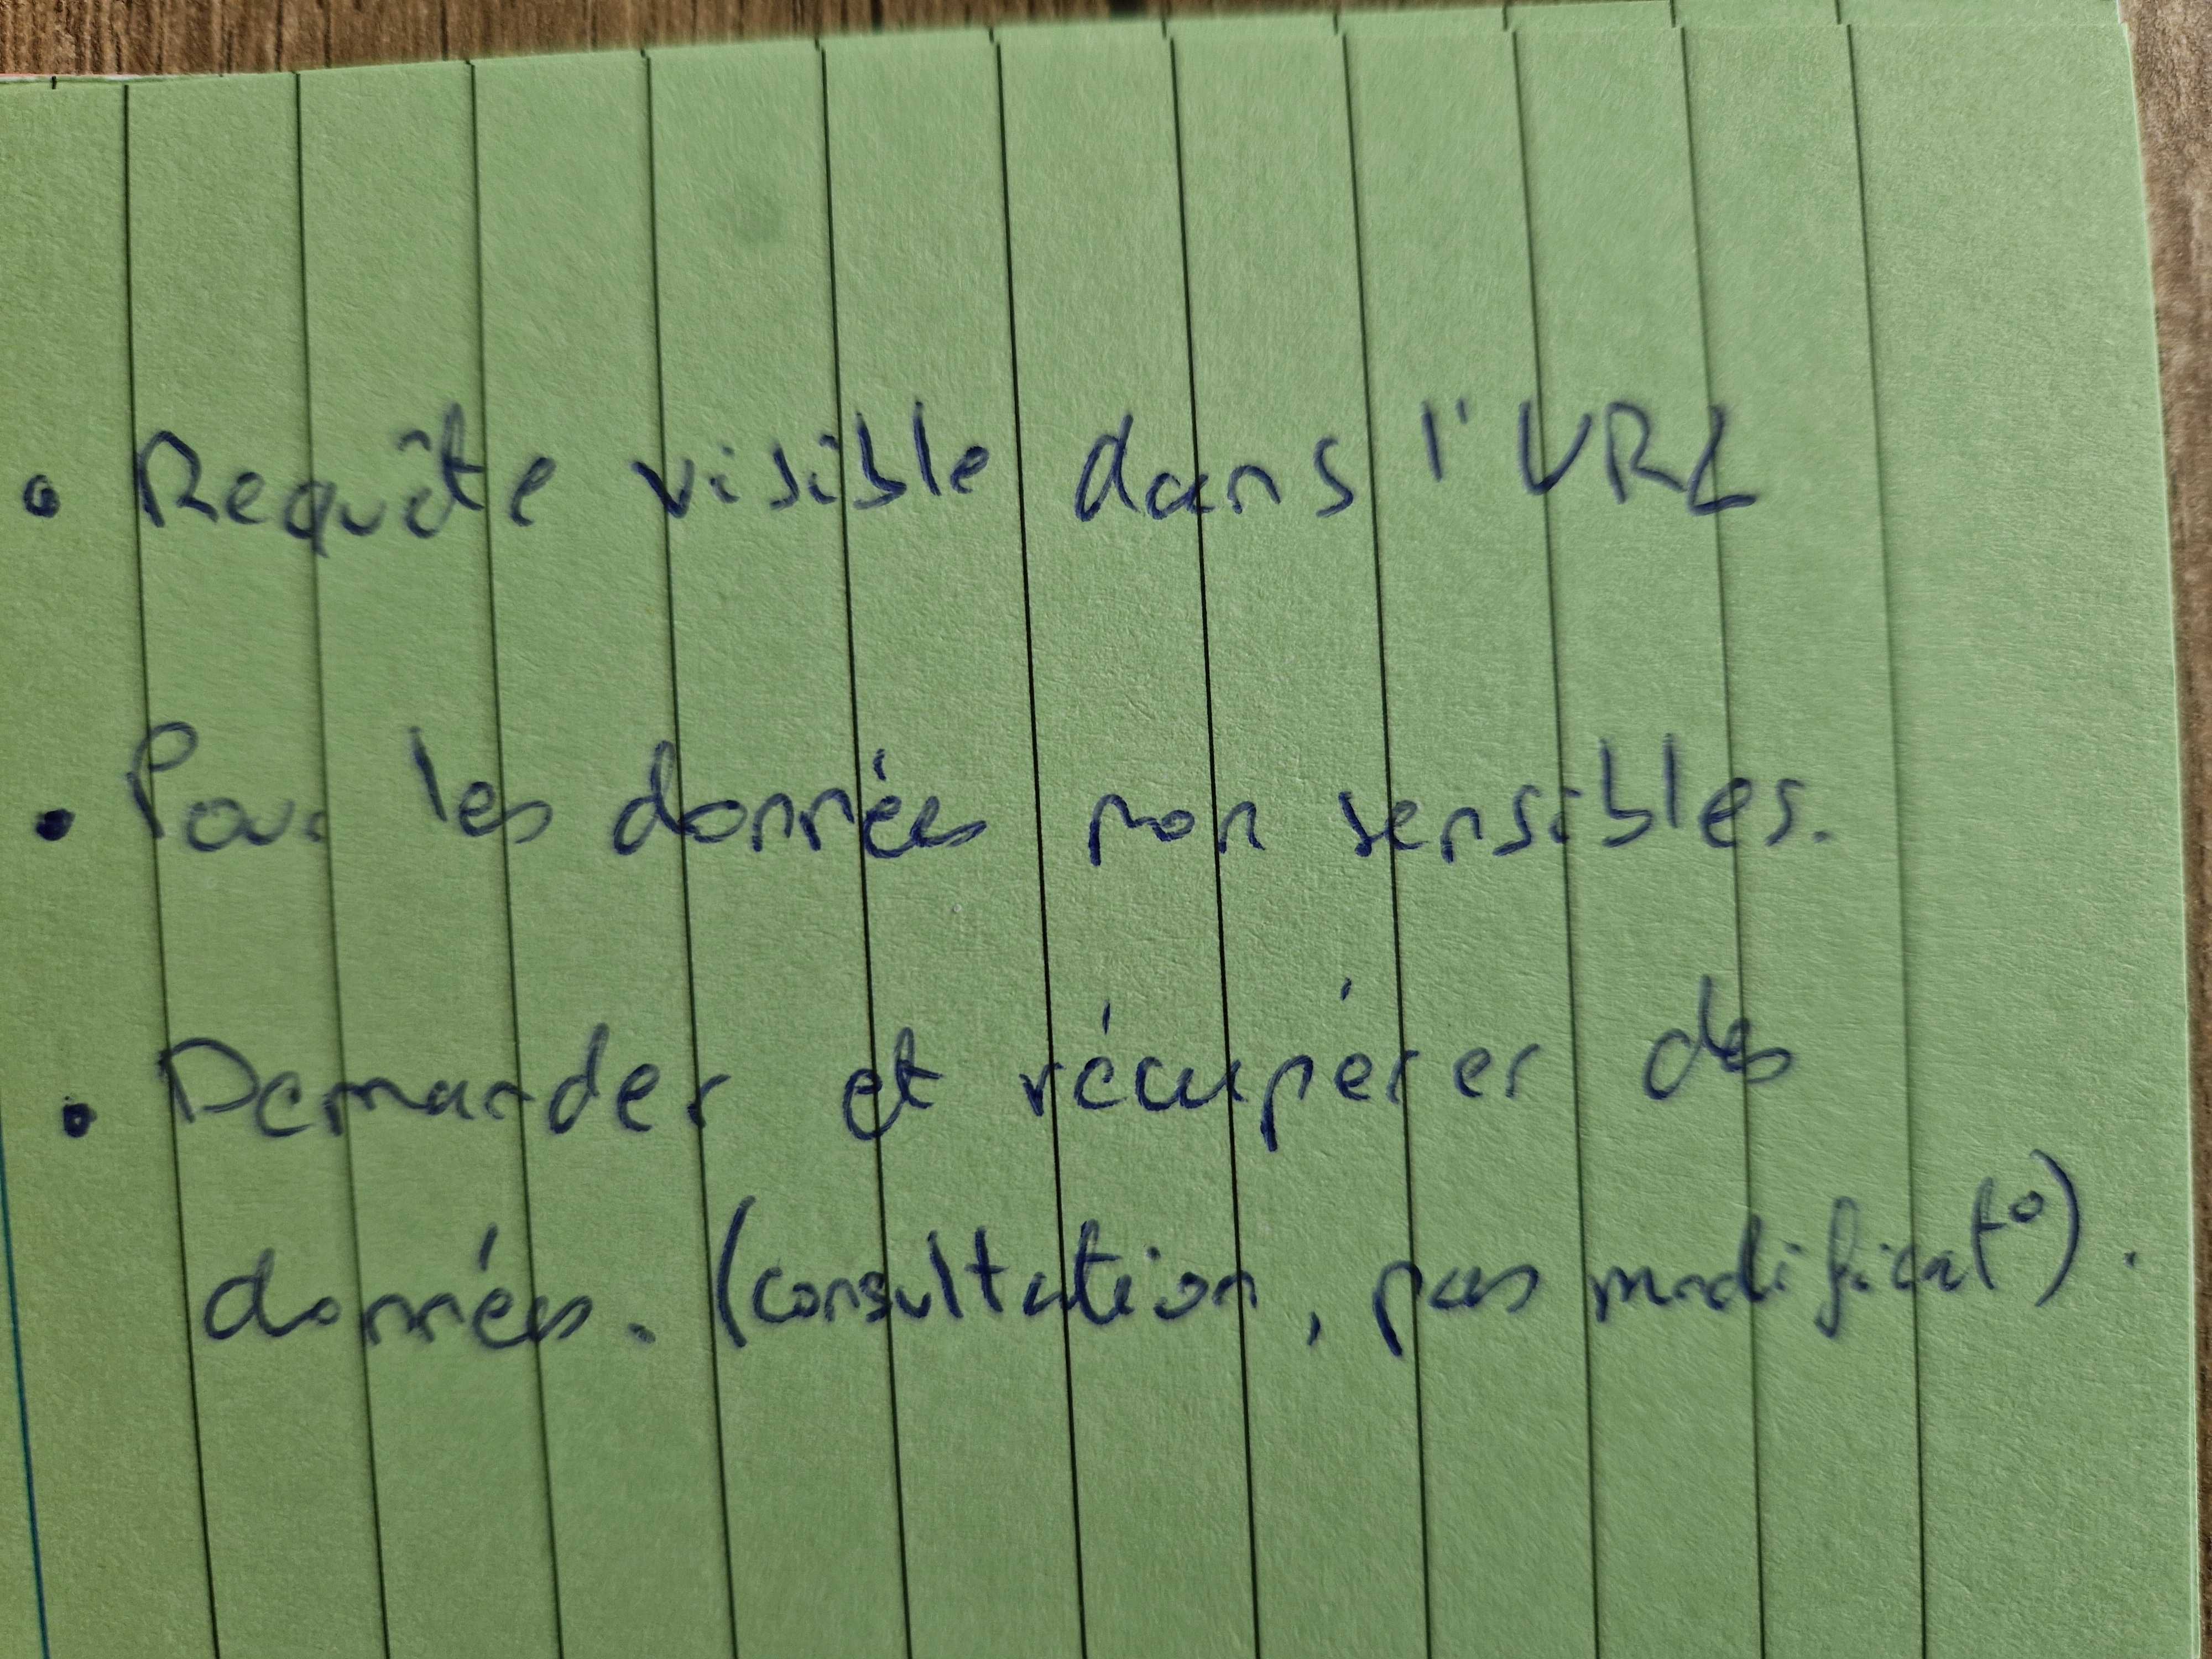 • Requête visible dans l'URL
• Pour les données non sensibles.
• Demander et récupérer des
données. (consultation, pas modificat°).